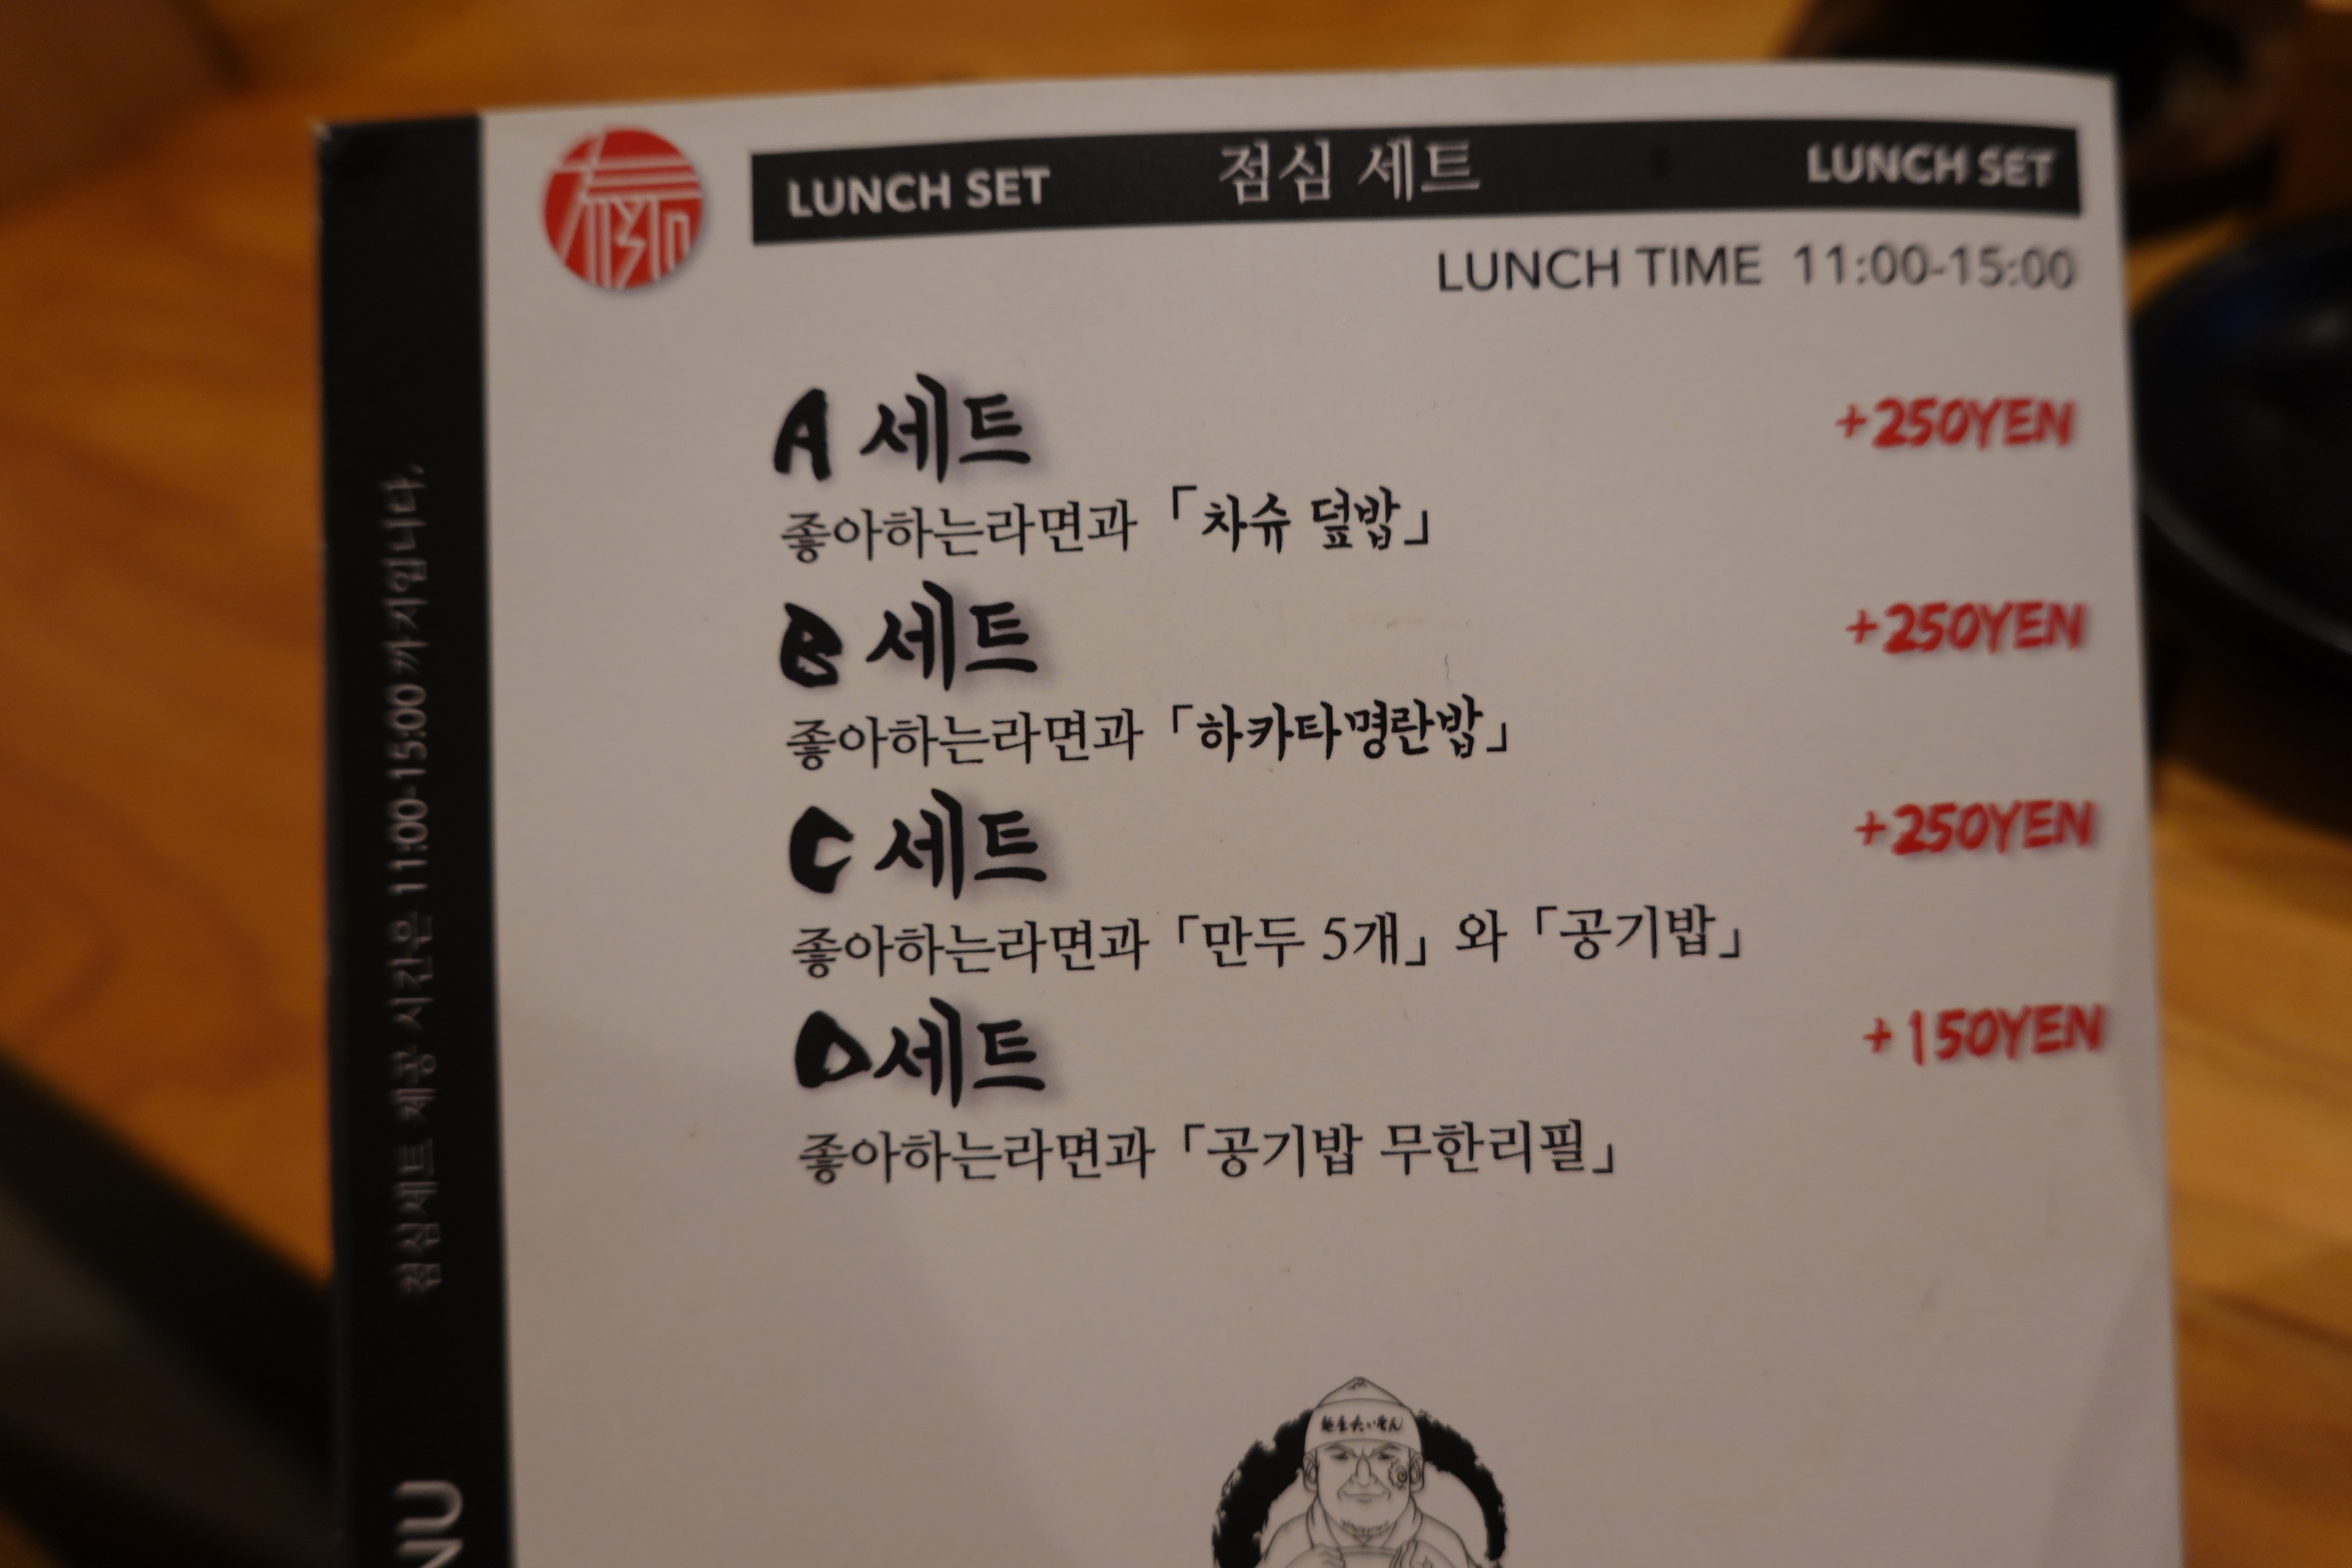 LUNCH SET 점심 세트 LUNCH SET
LUNCH TIME 11:00-15:00
A 세트 +250YEN
좋아하는라면과「차슈 덮밥」
B 세트 +250YEN
좋아하는라면과「하카타명란밥」
C 세트 +250YEN
좋아하는라면과「만두 5개」와「공기밥」
D세트 +150YEN
좋아하는라면과「공기밥 무한리필」
점심세트 제공 시간은 11:00-15:00까지입니다.
NU
麺屋たいそん